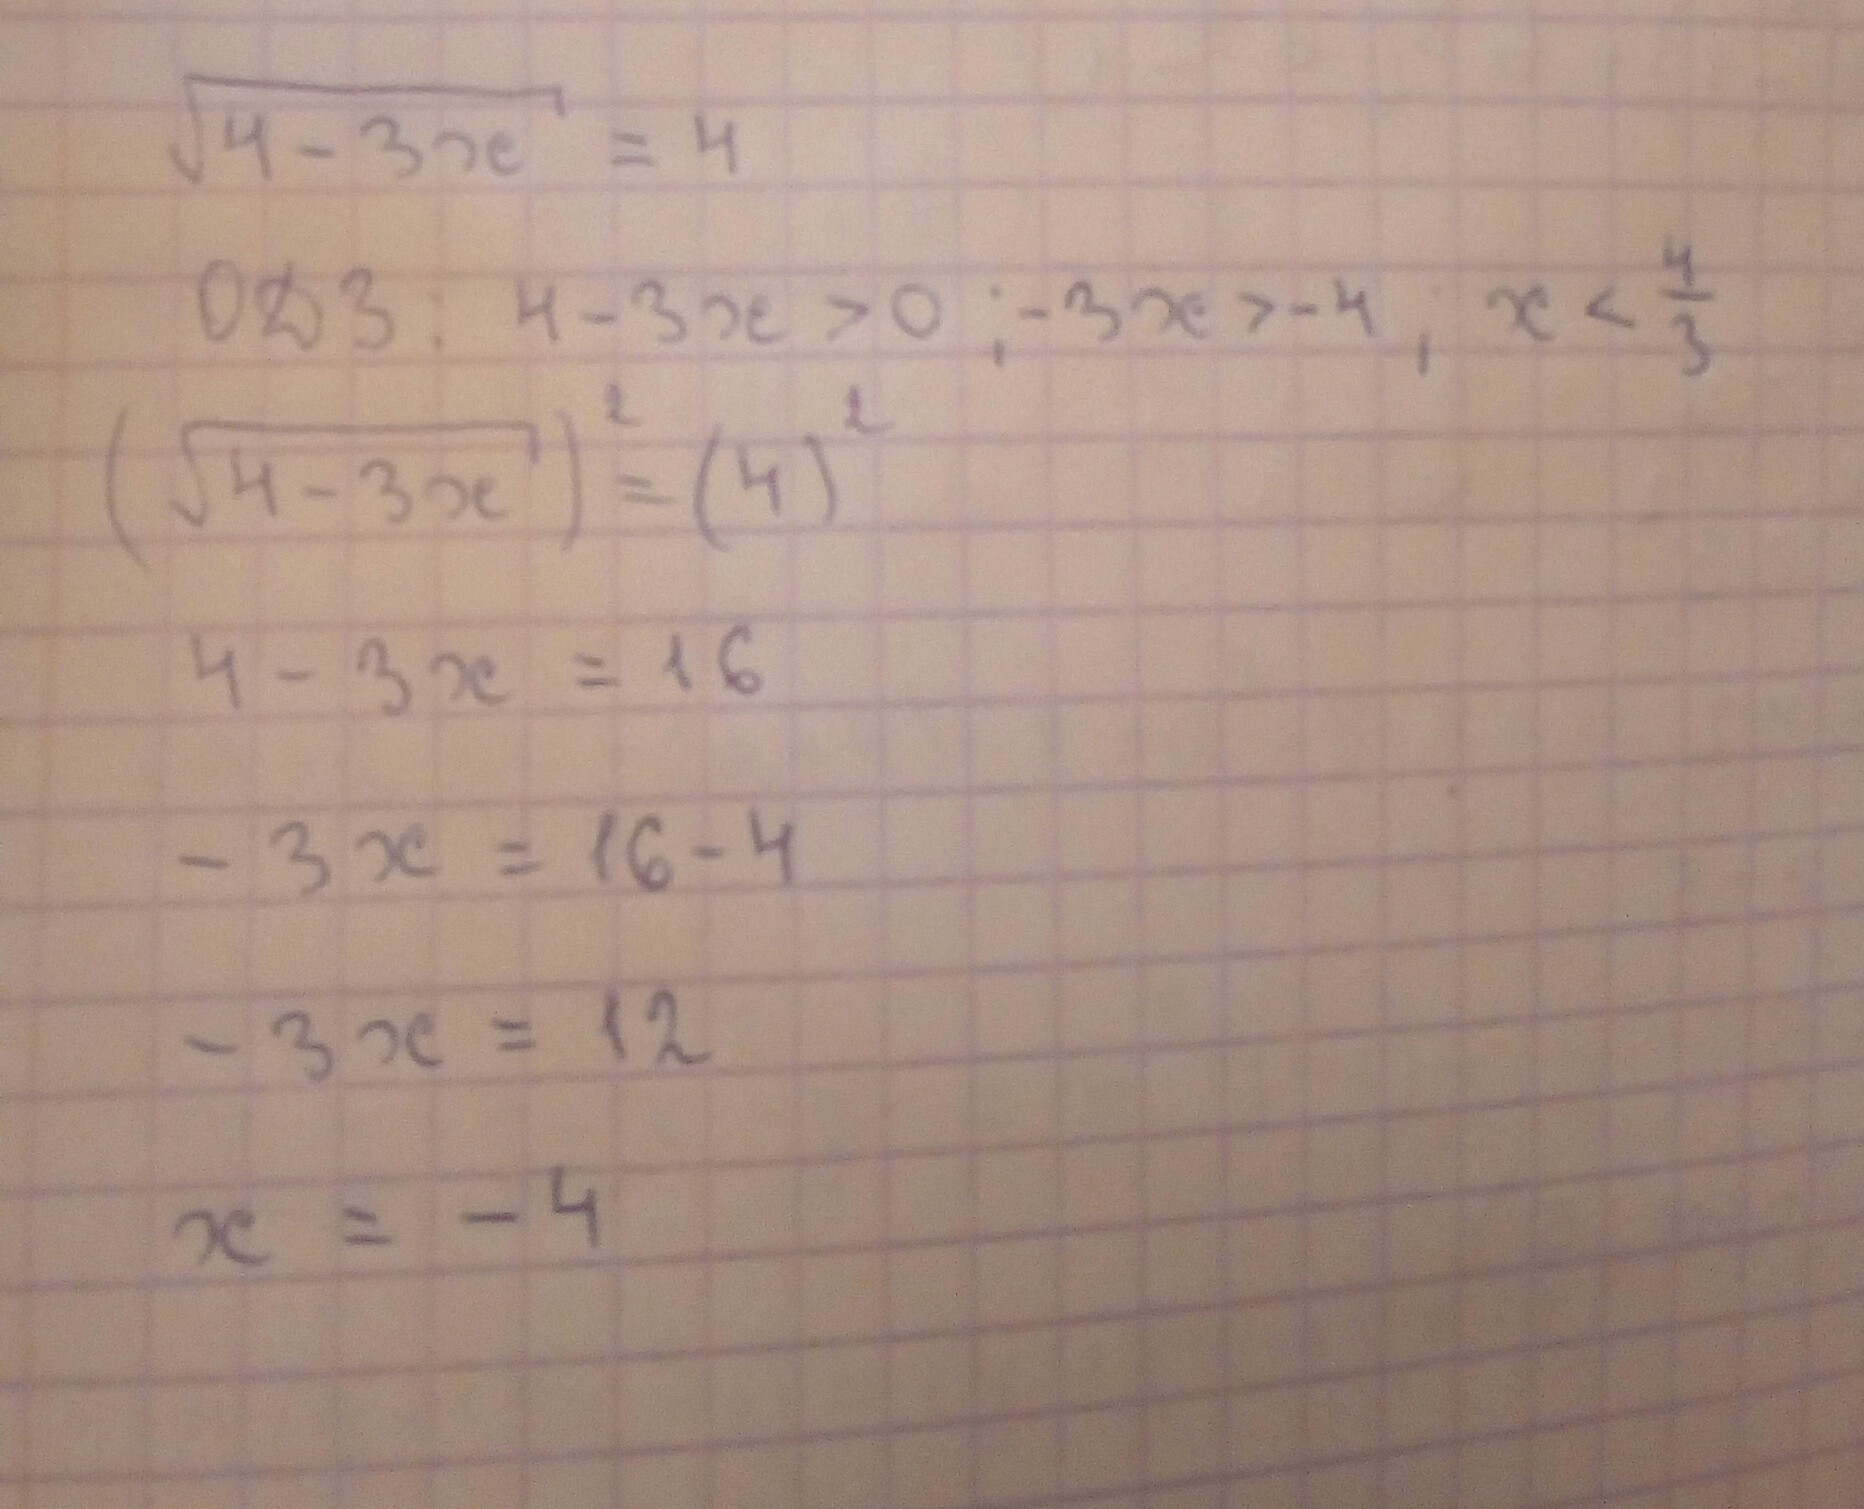 √(4-3x) = 4
ОДЗ: 4-3x>0; -3x>-4; x<4/3
(√(4-3x))² = (4)²
4-3x = 16
-3x = 16-4
-3x = 12
x = -4